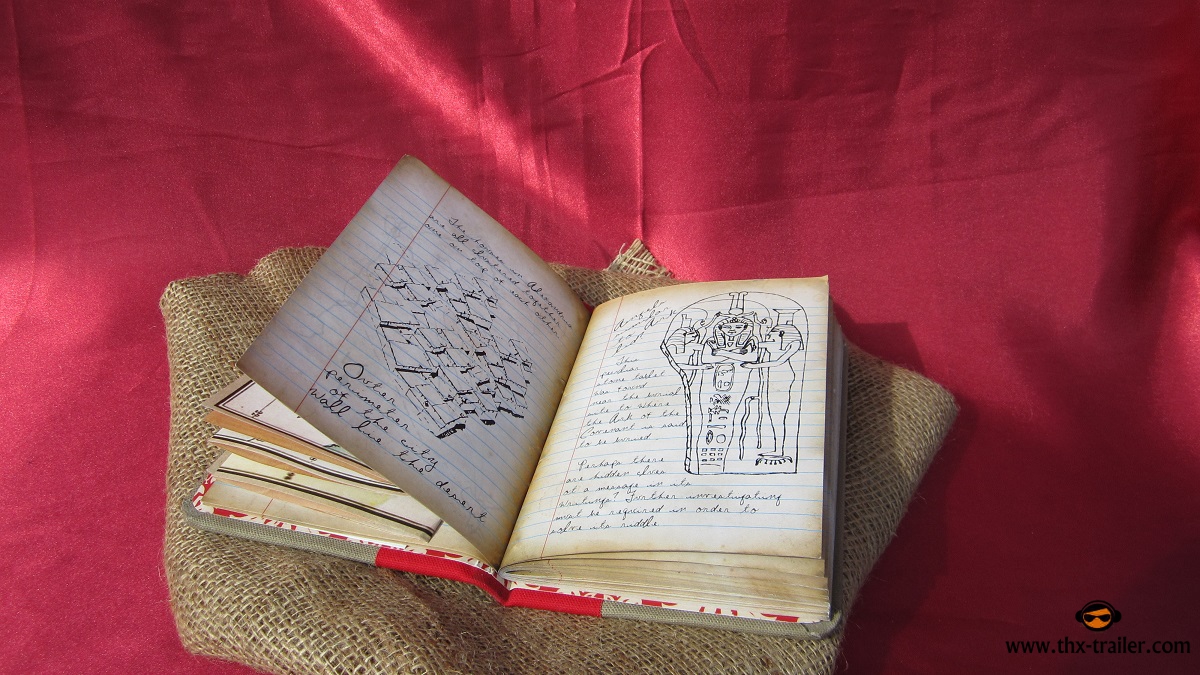 The houses in Alexandria
are all clustered together
one on top of each other
Outer
perimeter
of the city
wall lie the desert
This
peculiar
stone tablet
was found
near the burial
site to where
the Ark of the
Covenant is said
to be buried
Perhaps there
are hidden clues
at a message in its
writings? Further investigating
must be required in order to
solve its riddle
www.thx-trailer.com